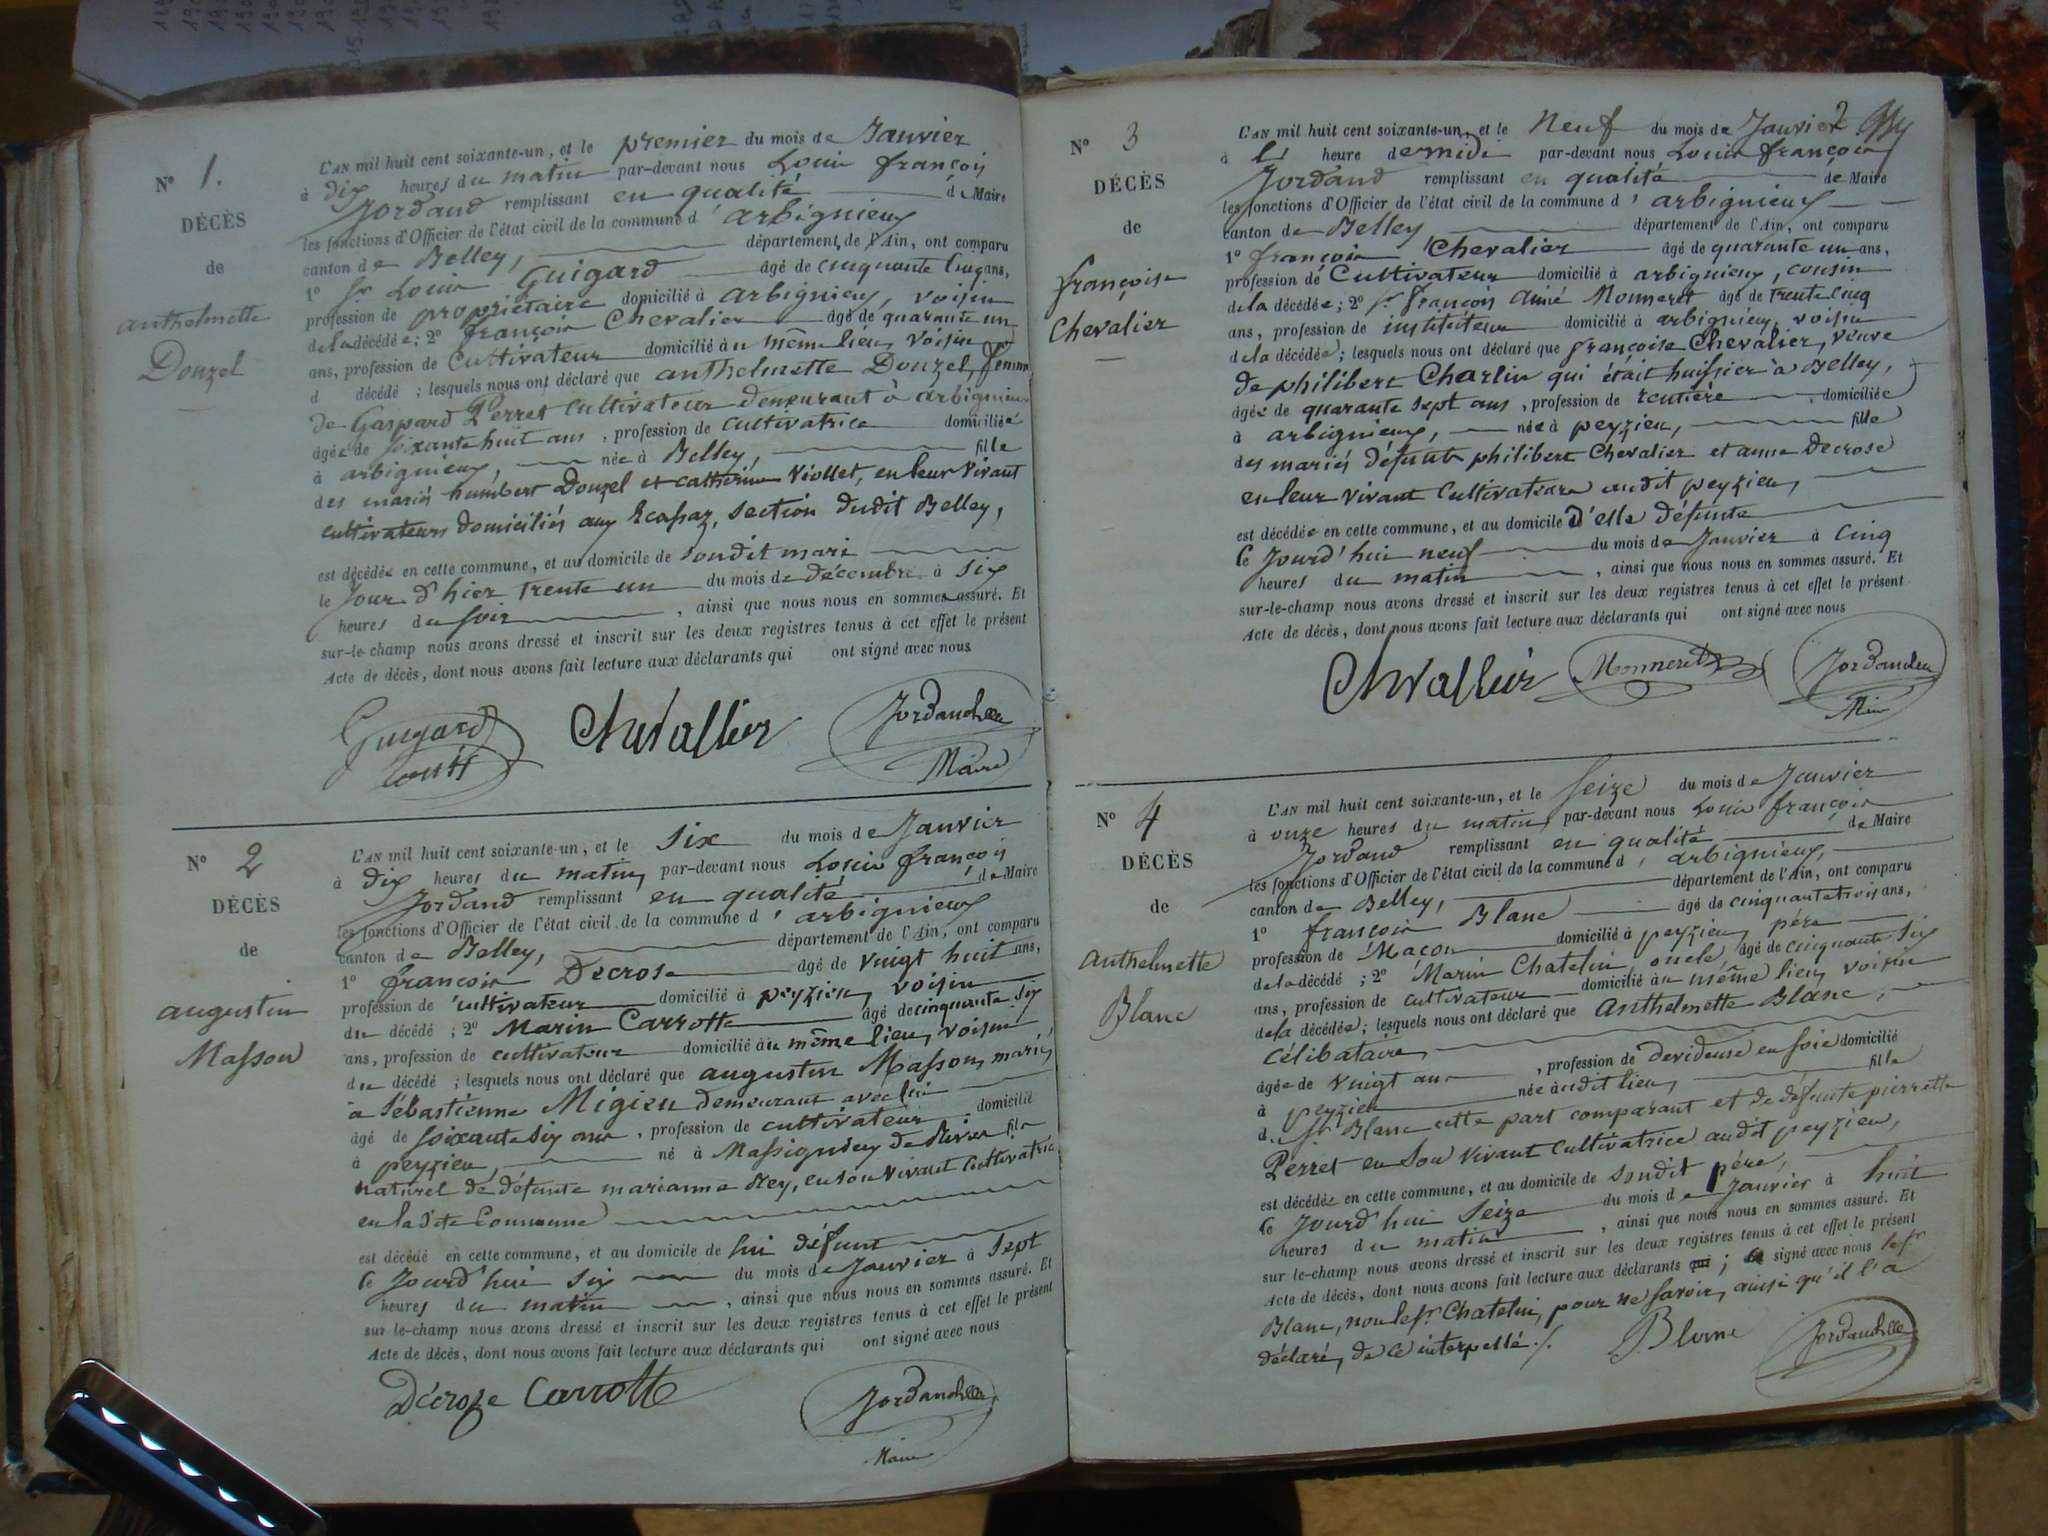 N° 1.
DÉCÈS
de
anthelmette
Douzel
L'AN mil huit cent soixante-un, et le premier du mois de Janvier
à dix heures du matin par-devant nous Louis françois
Jordand remplissant en qualité de Maire
les fonctions d'Officier de l'état civil de la commune d'arbignieux
canton de Belley, département de l'Ain, ont comparu
1° Sr Louis Guigard âgé de cinquante cinq ans,
profession de propriétaire domicilié à arbignieux, voisin
de la décédée; 2° françois Chevalier âgé de quarante un
ans, profession de Cultivateur domicilié au même lieu, voisin
d décédé ; lesquels nous ont déclaré que anthelmette Douzel, femme
de Gaspard Perret cultivateur demeurant à arbignieux
âgée de soixante huit ans, profession de cultivatrice domiciliée
à arbignieux, née à Belley, fille
des mariés humbert Douzel et catherine Viollet, en leur vivant
cultivateurs domiciliés aux Ecassaz, section dudit Belley,
est décédée en cette commune, et au domicile de sondit mari
le jour d'hier trente un du mois de décembre à six
heures du soir, ainsi que nous nous en sommes assuré. Et
sur-le-champ nous avons dressé et inscrit sur les deux registres tenus à cet effet le présent
Acte de décès, dont nous avons fait lecture aux déclarants qui ont signé avec nous
Guigard Chevallier
Maire
N° 2
DÉCÈS
de
augustin
Masson
L'AN mil huit cent soixante-un, et le six du mois de Janvier
à dix heures du matin, par-devant nous Louis françois
Jordand remplissant en qualité de Maire
les fonctions d'Officier de l'état civil de la commune d'arbignieux
canton de Belley, département de l'Ain, ont comparu
1° françois Decrose âgé de vingt huit ans,
profession de cultivateur domicilié à peyzieu, voisin
du décédé ; 2° Marin Carrotte âgé de cinquante six
ans, profession de cultivateur domicilié au même lieu, voisin
du décédé ; lesquels nous ont déclaré que augustin Masson, marié
à Sébastienne Migieu demeurant avec lui
âgé de soixante six ans, profession de cultivateur domicilié
à peyzieu, né à Massignieu de Rives fils
naturel de défunte marianne Rey, en son vivant Cultivatrice
en la dite Commune
est décédé en cette commune, et au domicile de lui défunt
le jourd'hui six du mois de Janvier à sept
heures du matin, ainsi que nous nous en sommes assuré. Et
sur le-champ nous avons dressé et inscrit sur les deux registres tenus à cet effet le présent
Acte de décès, dont nous avons fait lecture aux déclarants qui ont signé avec nous
Décroze Carrotte
Maire
N° 3
DÉCÈS
de
françoise
Chevalier
2
L'AN mil huit cent soixante-un, et le Neuf du mois de Janvier
à heure de midi par-devant nous Louis françois
Jordand remplissant en qualité de Maire
les fonctions d'Officier de l'état civil de la commune d'arbignieux
canton de Belley département de l'Ain, ont comparu
1° françois Chevalier âgé de quarante un ans,
profession de Cultivateur domicilié à arbignieux, cousin
de la décédée; 2° Sr françois aimé Monneret âgé de trente cinq
ans, profession de instituteur domicilié à arbignieux, voisin
de la décédée; lesquels nous ont déclaré que françoise Chevalier, veuve
de philibert Charlin qui était huissier à Belley,
âgée de quarante sept ans, profession de rentière domiciliée
à arbignieux, née à peyzieu, fille
des mariés défunts philibert Chevalier et anne Decrose
en leur vivant Cultivateurs audit peyzieu,
est décédée en cette commune, et au domicile d'elle défunte
le jourd'hui neuf du mois de Janvier à cinq
heures du matin, ainsi que nous nous en sommes assuré. Et
sur-le-champ nous avons dressé et inscrit sur les deux registres tenus à cet effet le présent
Acte de décès, dont nous avons fait lecture aux déclarants qui ont signé avec nous
Chevallier Monneret
N° 4
DÉCÈS
de
anthelmette
Blanc
L'AN mil huit cent soixante-un, et le seize du mois de Janvier
à onze heures du matin, par-devant nous Louis françois
Jordand remplissant en qualité de Maire
les fonctions d'Officier de l'état civil de la commune d'arbignieux,
canton de Belley, département de l'Ain, ont comparu
1° françois Blanc âgé de cinquante trois ans,
profession de Maçon domicilié à peyzieu, père
de la décédé ; 2° Marin Chatelin, oncle, âgé de cinquante six
ans, profession de cultivateur domicilié au même lieu, voisin
de la décédée; lesquels nous ont déclaré que Anthelmette Blanc,
célibataire,
âgée de vingt ans, profession de devideuse en soie domicilié
à peyzieu née audit lieu, fille
du Sr Blanc cette part comparant et de défunte pierrette
Perret en son vivant Cultivatrice audit peyzieu,
est décédée en cette commune, et au domicile de sondit père,
le jourd'hui seize du mois de Janvier à huit
heures du matin, ainsi que nous nous en sommes assuré. Et
sur le-champ nous avons dressé et inscrit sur les deux registres tenus à cet effet le présent
Acte de décès, dont nous avons fait lecture aux déclarants qui ; a signé avec nous le sr
Blanc, non le sr Chatelin, pour ne savoir, ainsi qu'il l'a
déclaré, de ce interpellé./. Blanc